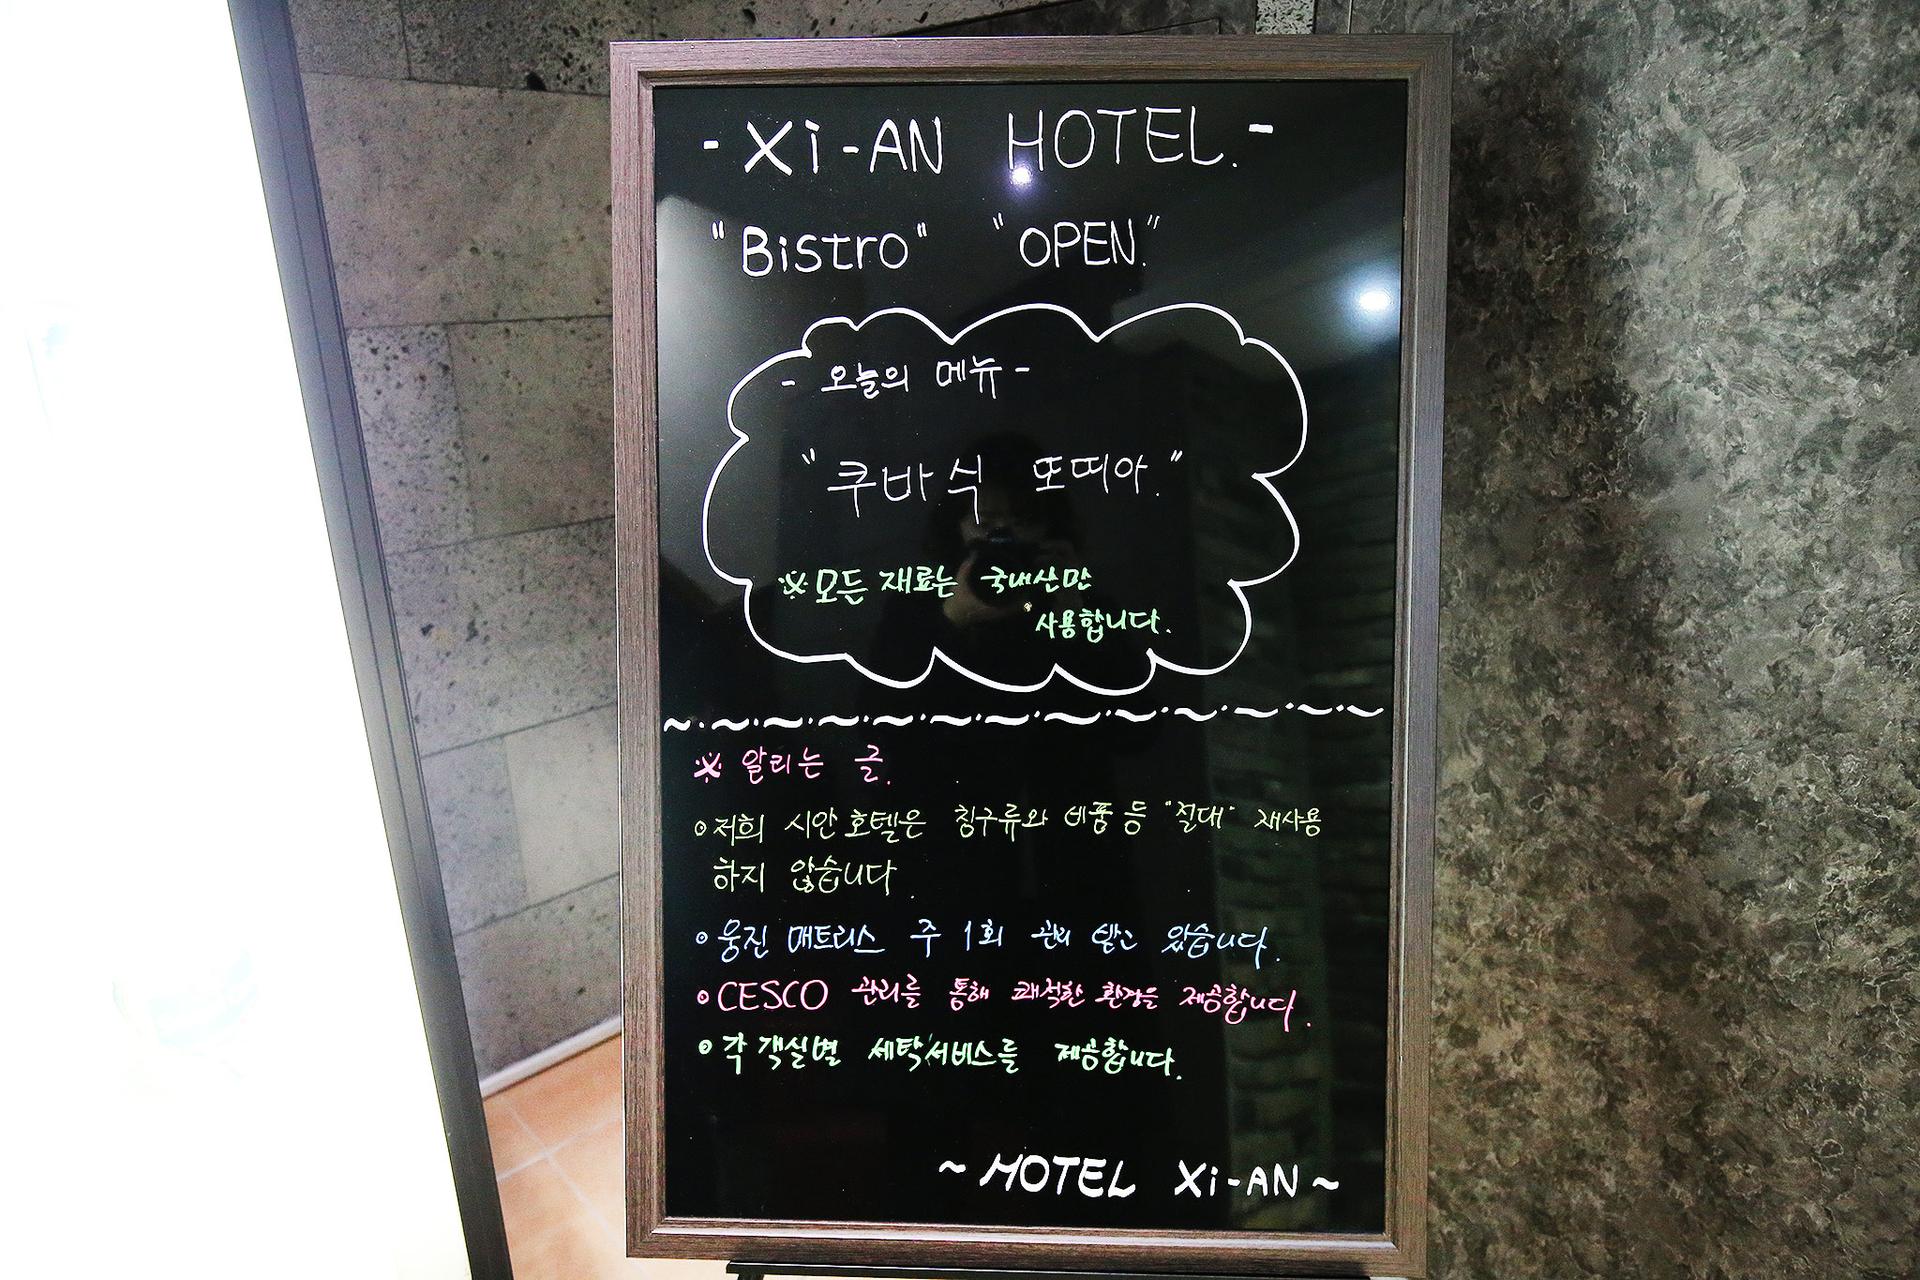 - Xi-AN HOTEL. -
"Bistro" "OPEN."
- 오늘의 메뉴 -
"쿠바식 또띠아."
※ 모든 재료는 국내산만
사용합니다.
※ 알리는 글.
저희 시안호텔은 침구류와 비품 등 "절대" 재사용
하지 않습니다.
웅진 매트리스 주 1회 관리 받고 있습니다.
CESCO 관리를 통해 쾌적한 환경을 제공합니다.
각 객실별 세탁서비스를 제공합니다.
~ HOTEL Xi-AN ~